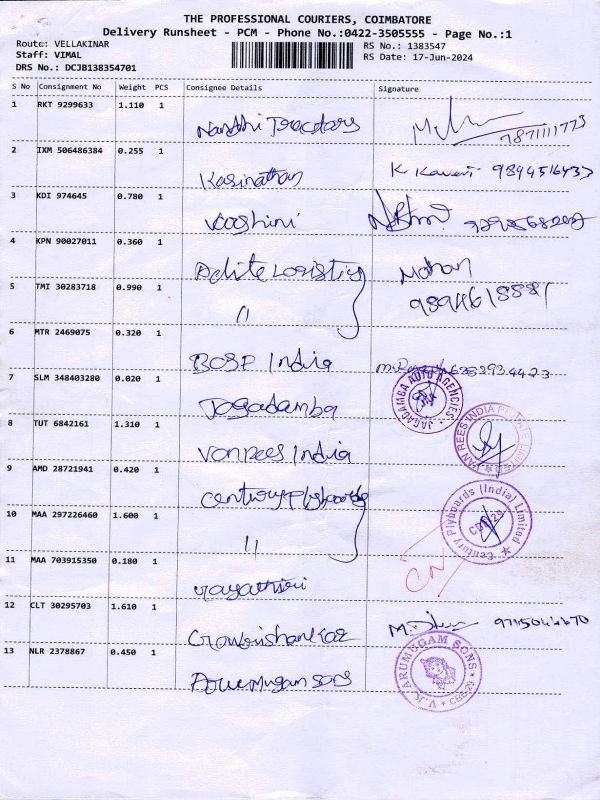 THE PROFESSIONAL COURIERS, COIMBATORE
Delivery Runsheet - PCM - Phone No.:0422-3505555 - Page No.:1
Route: VELLAKINAR
Staff: VIMAL
DRS No.: DCJB138354701
RS No.: 1383547
RS Date: 17-Jun-2024
S No Consignment No Weight PCS Consignee Details Signature
1 RKT 9299633 1.110 1
Nandhi 7871111773
2 IXM 506486384 0.255 1
Kasinathan K Kaveri 9894516433
3 KDI 974645 0.780 1
Vooshini
4 KPN 90027011 0.360 1
Mohan
5 TMI 30283718 0.990 1
11
6 MTR 2469075 0.320 1
BOSP India
7 SLM 348403280 0.020 1
Jagadamba JAGADAMBA AUTO AGENCIES
8 TUT 6842161 1.310 1
Vanrees India VAN REES INDIA
9 AMD 28721941 0.420 1
Century Plyboards
10 MAA 297226460 1.600 1
11 Century Plyboards (India) Limited CBE-29
11 MAA 703915350 0.180 1
12 CLT 30295703 1.610 1
Gowrishankar
13 NLR 2378867 0.450 1
Arumugam sons V.K. ARUMUGAM SONS CBE-29